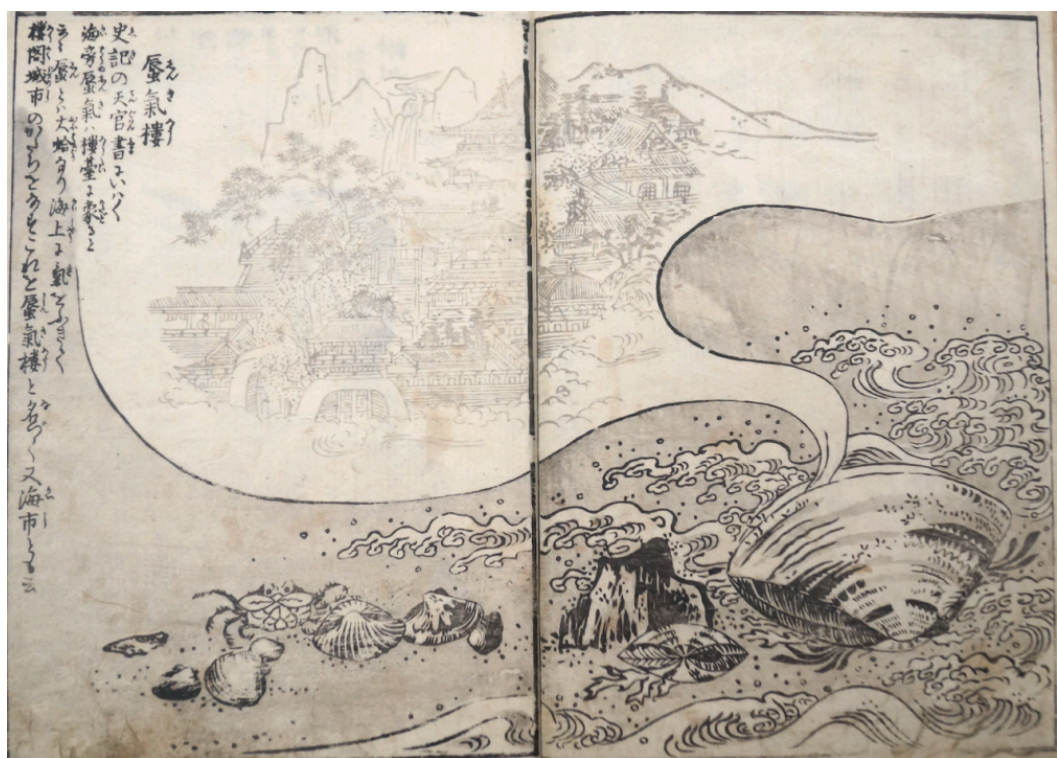 蜃氣楼
史記の天官書にいはく
海旁蜃氣ハ樓臺に象ると
云々蜃とハ大蛤なり海上に氣をふきて
樓閣城市のかたちをなすこれを蜃氣樓と名づく又海市とも云